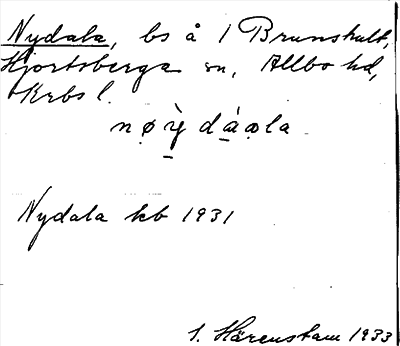 Nydala, bs å 1 Brunshult,
Hjortsberga sn, Allbo hd,
Krbs l.
nø̀y̠ dá̠ɷla
Nydala kb 1931
S. Härenstam 1933